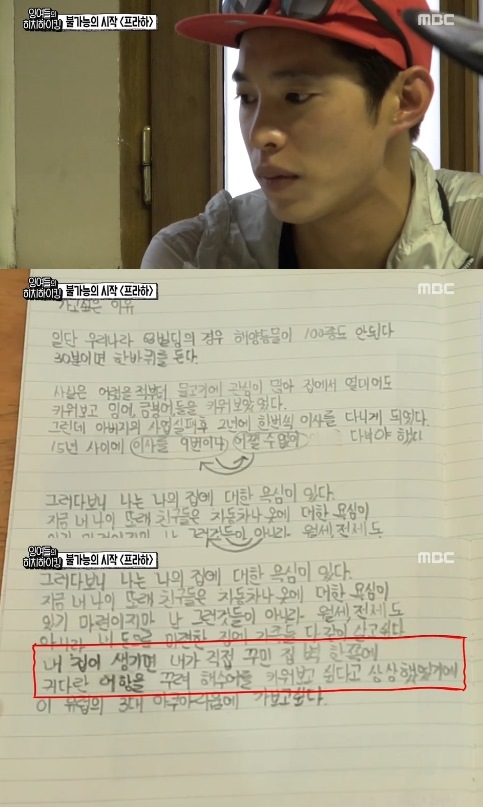 잉여들의
히치하이킹
불가능의 시작 <프라하>
MBC
잉여들의
히치하이킹
불가능의 시작 <프라하>
MBC
가고싶은 이유
일단 우리나라 63빌딩의 경우 해양동물이 100종도 안된다
30분이면 한바퀴를 돈다.
사실은 어렸을 적부터 물고기에 관심이 많아 집에서 열대어도
키워보고 잉어, 금붕어들을 키워보았었다.
그런데 아버지의 사업실패후 2년에 한번씩 이사를 다니게 되었다.
15년 사이에 이사를 9번이나 어쩔 수 없이 다녀야 했다
그러다보니 나는 나의 집에 대한 욕심이 있다.
지금 내 나이 또래 친구들은 자동차나 옷에 대한 욕심이
있기 마련이지만 난 그런것들이 아니라 월세, 전세도
잉여들의
히치하이킹
불가능의 시작 <프라하>
MBC
그러다보니 나는 나의 집에 대한 욕심이 있다.
지금 내 나이 또래 친구들은 자동차나 옷에 대한 욕심이
있기 마련이지만 난 그런것들이 아니라 월세, 전세도
아니라 내 돈으로 마련한 집에 가족들 다같이 살고싶다
내 집이 생기면 내가 직접 꾸민 집 벽 한쪽에
커다란 어항을 꾸려 해수어를 키워보고 싶다고 상상했었기에
이 유럽의 3대 아쿠아리움에 가보고싶다.